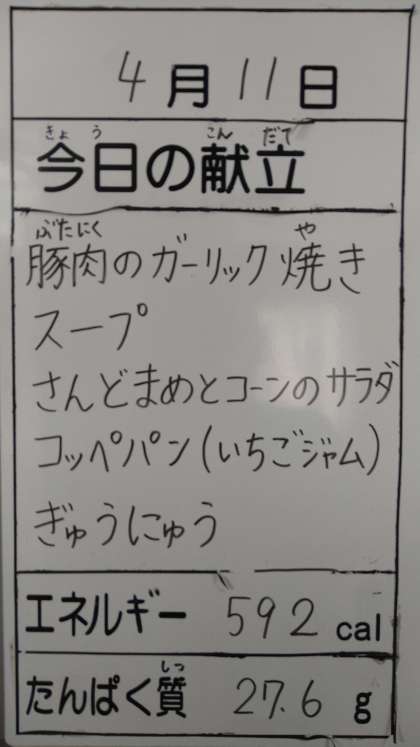 4月11日
きょう こん だて
今日の献立
ぶたにく や
豚肉のガーリック焼き
スープ
さんどまめとコーンのサラダ
コッペパン(いちごジャム)
ぎゅうにゅう
エネルギー 592 cal
しつ
たんぱく質 27.6 g